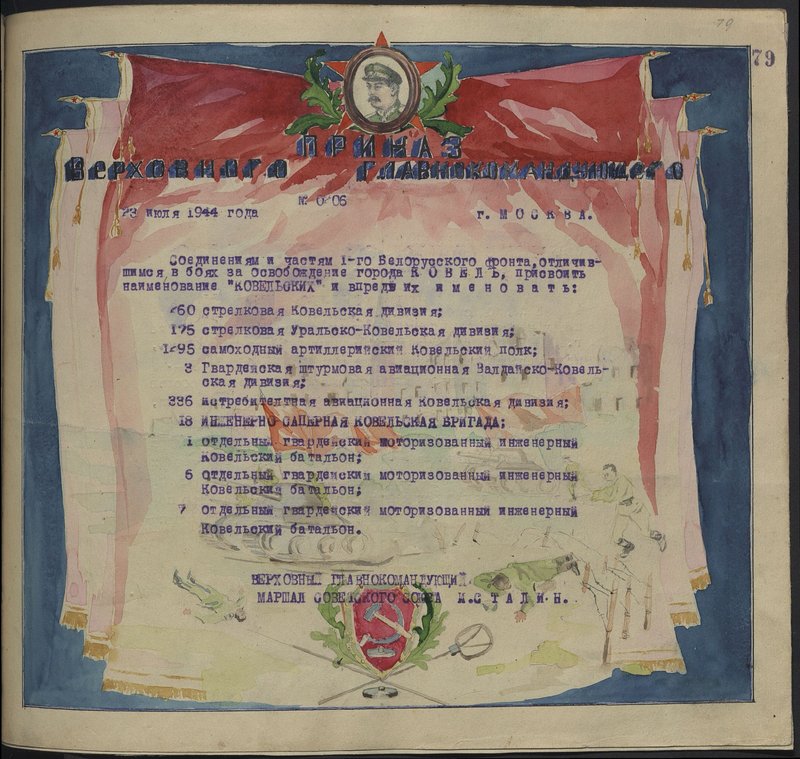 79
79
ПРИКАЗ
ВЕРХОВНОГО ГЛАВНОКОМАНДУЮЩЕГО
№ 0206
23 июля 1944 года г. МОСКВА.
Соединениям и частям 1-го Белорусского фронта, отличив-
шимся в боях за освобождение города КОВЕЛЬ, присвоить
наименование "КОВЕЛЬСКИХ" и впредь их именовать:
260 стрелковая Ковельская дивизия;
175 стрелковая Уральско-Ковельская дивизия;
1295 самоходный артиллерийский Ковельский полк;
3 Гвардейская штурмовая авиационная Валдайско-Ковель-
ская дивизия;
336 истребителтная авиационная Ковельская дивизия;
18 ИНЖЕНЕРНО-САПЕРНАЯ КОВЕЛЬСКАЯ БРИГАДА;
1 отдельный гвардейский моторизованный инженерный
Ковельский батальон;
6 отдельный гвардейский моторизованный инженерный
Ковельский батальон;
7 отдельный гвардейский моторизованный инженерный
Ковельский батальон.
ВЕРХОВНЫЙ ГЛАВНОКОМАНДУЮЩИЙ
МАРШАЛ СОВЕТСКОГО СОЮЗА И.СТАЛИН.